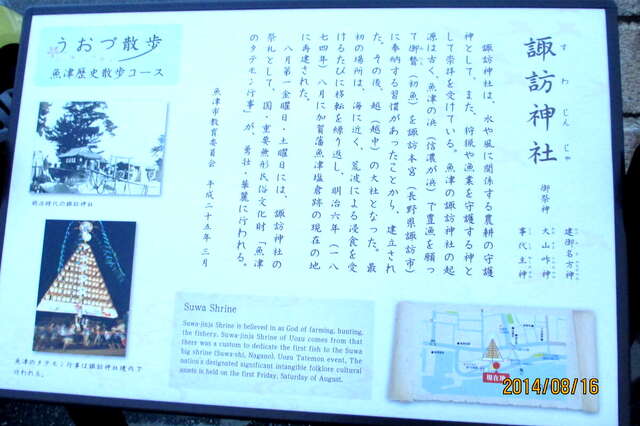 うおづ散歩
魚津歴史散歩コース
諏訪神社
すわじんじゃ
御祭神
建御名方神
大山咋神
事代主神
諏訪神社は、水や風に関係する農耕の守護
神として、また、狩猟や漁業を守護する神と
して崇拝を受けている。魚津の諏訪神社の起
源は古く、魚津の浜（信濃が浜）で豊漁を願っ
て御贄（初魚）を諏訪本宮（長野県諏訪市）
に奉納する習慣があったことから、建立され
た。その後、越（越中）の大社となった。最
初の場所は、海に近く、荒波による浸食を受
けるたびに移転を繰り返し、明治六年（一八
七四年）八月に加賀藩魚津塩倉跡の現在の地
に再建された。
八月第一金曜日・土曜日には、諏訪神社の
祭礼として、国・重要無形民俗文化財「魚津
のタテモン行事」が、勇壮・華麗に行われる。
魚津市教育委員会　平成二十五年三月
明治時代の諏訪神社
魚津のタテモン行事は諏訪神社境内で
行われる。
Suwa Shrine
Suwa-jinja Shrine is believed in as God of farming, hunting,
the fishery. Suwa-jinja Shrine of Uozu comes from that
there was a custom to dedicate the first fish to the Suwa
big shrine (Suwa-shi, Nagano). Uozu Tatemon event, The
nation's designated significant intangible folklore cultural
assets is held on the first Friday, Saturday of August.
現在地
2014/08/16